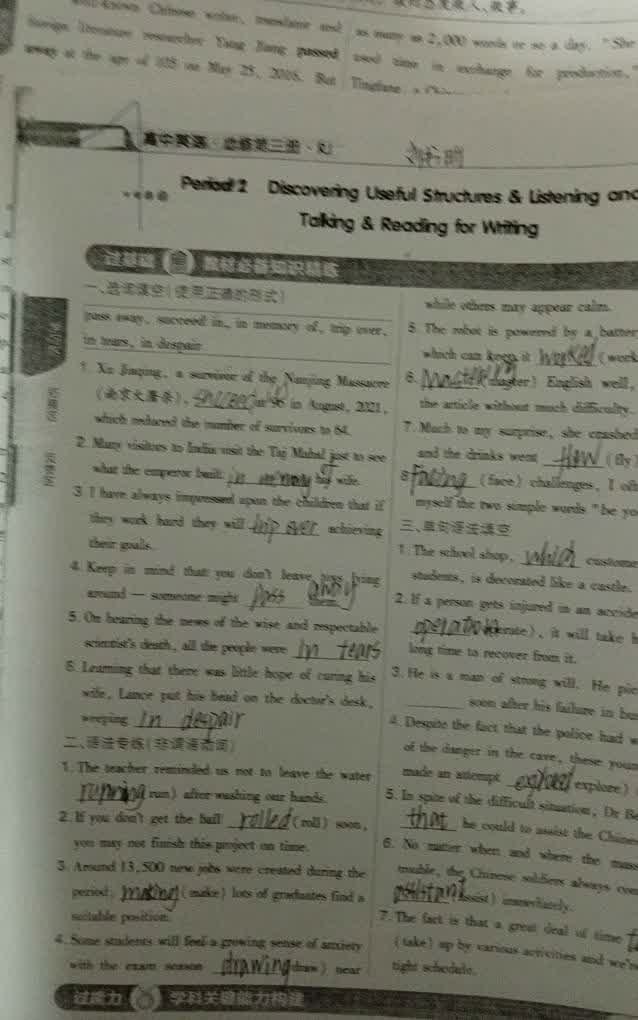 well-known Chinese writer, translator and
foreign literature researcher Yang Jiang passed
away at the age of 105 on May 25, 2016. But
as many as 2,000 words or so a day. "She
used time in exchange for production,"
高中英语·必修第三册·RJ
Period 2 Discovering Useful Structures & Listening and
Talking & Reading for Writing
过基础 教材必备知识精练
一、选词填空(使用正确的形式)
pass away, succeed in, in memory of, trip over,
in tears, in despair
1. Xia Shuqing, a survivor of the Nanjing Massacre
(南京大屠杀), at 96 in August, 2021,
which reduced the number of survivors to 64.
2. Many visitors to India visit the Taj Mahal just to see
what the emperor built in memory of his wife.
3. I have always impressed upon the children that if
they work hard they will trip over achieving
their goals.
4. Keep in mind that you don't leave toys lying
around — someone might pass away them.
5. On hearing the news of the wise and respectable
scientist's death, all the people were in tears
6. Learning that there was little hope of curing his
wife, Lance put his head on the doctor's desk,
weeping in despair
二、语法专练(非谓语动词)
1. The teacher reminded us not to leave the water
running (run) after washing our hands.
2. If you don't get the ball rolled (roll) soon,
you may not finish this project on time.
3. Around 13,500 new jobs were created during the
period, making (make) lots of graduates find a
suitable position.
4. Some students will feel a growing sense of anxiety
with the exam season drawing (draw) near
过能力 学科关键能力构建
while others may appear calm.
5. The robot is powered by a batter
which can keep it worked (work
6. (master) English well,
the article without much difficulty.
7. Much to my surprise, she crashed
and the drinks went flew (fly)
8. Faking (face) challenges, I oft
myself the two simple words "be yo
三、单句语法填空
1. The school shop, which custome
students, is decorated like a castle.
2. If a person gets injured in an accide
operation (operate), it will take h
long time to recover from it.
3. He is a man of strong will. He pic
soon after his failure in bu
4. Despite the fact that the police had w
of the danger in the cave, these youn
made an attempt explored (explore)
5. In spite of the difficult situation, Dr Be
that he could to assist the Chine
6. No matter when and where the mass
trouble, the Chinese soldiers always com
assistant (assist) immediately.
7. The fact is that a great deal of time
(take) up by various activities and we're
tight schedule.